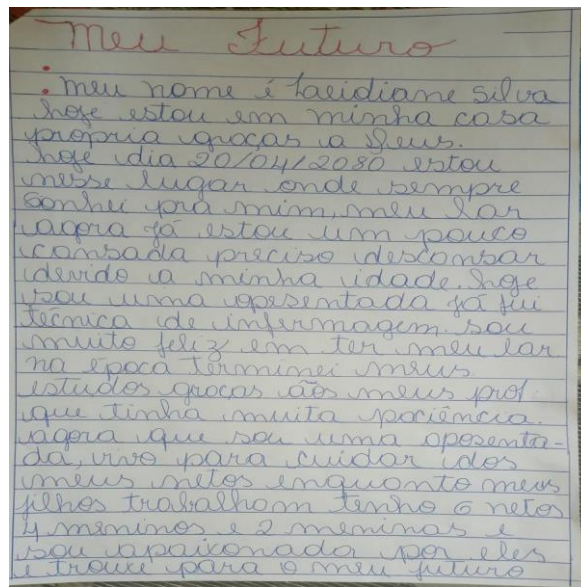 Meu Futuro
: meu nome é Laeidiane Silva
hoje estou em minha casa
propria graças a Deus.
hoje dia 20/04/2080 estou
nesse lugar onde sempre
sonhei pra mim, meu lar
agora já estou um pouco
cansada preciso descansar
devido a minha idade. hoje
sou uma aposentada já fui
técnica de infermagem. sou
muito feliz em ter meu lar
na época terminei meus
estudos graças aos meus prof.
que tinha muita paciência.
agora que sou uma aposenta-
da, vivo para cuidar dos
meus netos enquanto meus
filhos trabalham tenho 6 netos
4 meninos e 2 meninas e
sou apaixonada por eles
e trouxe para o meu futuro